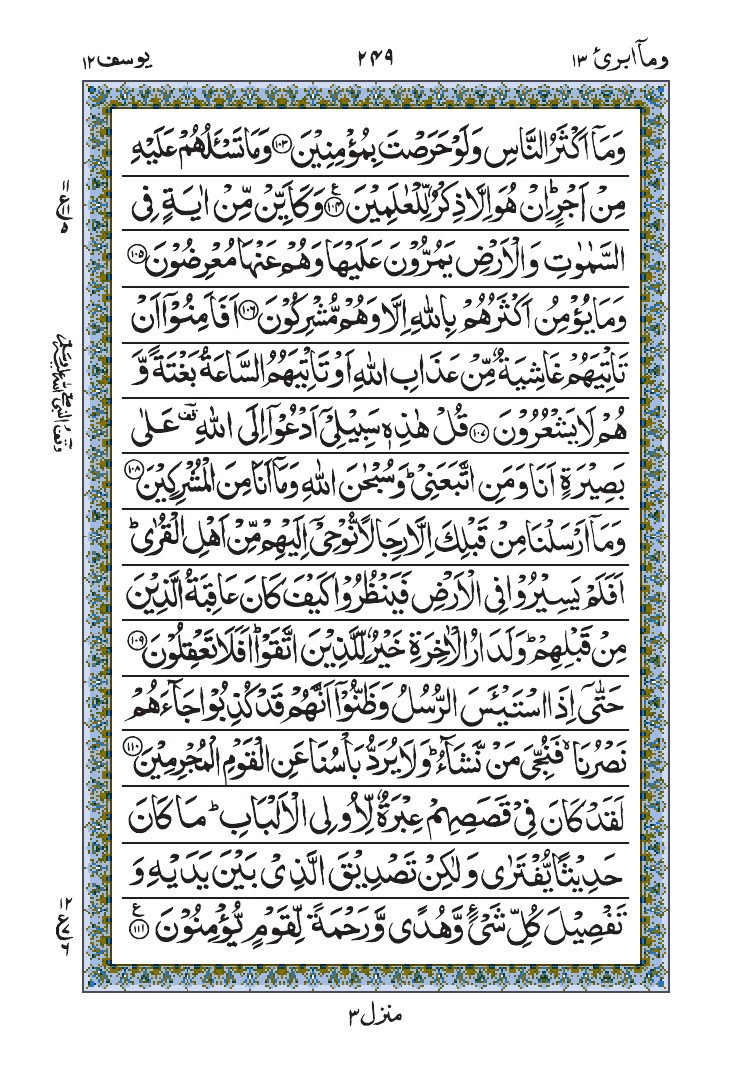 وماۤ ابرئ ١٣
٢٤٩
يوسف ١٢
وَمَاۤ اَكْثَرُ النَّاسِ وَلَوْ حَرَصْتَ بِمُؤْمِنِيْنَ ﴿١٠٣﴾ وَمَا تَسْـَٔلُهُمْ عَلَيْهِ
مِنْ اَجْرٍؕ اِنْ هُوَ اِلَّا ذِكْرٌ لِّلْعٰلَمِيْنَ ﴿١٠٤﴾ ع وَكَاَيِّنْ مِّنْ اٰيَةٍ فِى
السَّمٰوٰتِ وَالْاَرْضِ يَمُرُّوْنَ عَلَيْهَا وَهُمْ عَنْهَا مُعْرِضُوْنَ ﴿١٠٥﴾
وَمَا يُؤْمِنُ اَكْثَرُهُمْ بِاللّٰهِ اِلَّا وَهُمْ مُّشْرِكُوْنَ ﴿١٠٦﴾ اَفَاَمِنُوْۤا اَنْ
تَاْتِيَهُمْ غَاشِيَةٌ مِّنْ عَذَابِ اللّٰهِ اَوْ تَاْتِيَهُمُ السَّاعَةُ بَغْتَةً وَّ
هُمْ لَا يَشْعُرُوْنَ ﴿١٠٧﴾ قُلْ هٰذِهٖ سَبِيْلِىْۤ اَدْعُوْۤا اِلَى اللّٰهِ ؔ عَلٰى
بَصِيْرَةٍ اَنَا وَمَنِ اتَّبَعَنِىْؕ وَسُبْحٰنَ اللّٰهِ وَمَاۤ اَنَا مِنَ الْمُشْرِكِيْنَ ﴿١٠٨﴾
وَمَاۤ اَرْسَلْنَا مِنْ قَبْلِكَ اِلَّا رِجَالًا نُّوْحِىْۤ اِلَيْهِمْ مِّنْ اَهْلِ الْقُرٰىؕ
اَفَلَمْ يَسِيْرُوْا فِى الْاَرْضِ فَيَنْظُرُوْا كَيْفَ كَانَ عَاقِبَةُ الَّذِيْنَ
مِنْ قَبْلِهِمْؕ وَلَدَارُ الْاٰخِرَةِ خَيْرٌ لِّلَّذِيْنَ اتَّقَوْاؕ اَفَلَا تَعْقِلُوْنَ ﴿١٠٩﴾
حَتّٰۤى اِذَا اسْتَيْـَٔسَ الرُّسُلُ وَظَنُّوْۤا اَنَّهُمْ قَدْ كُذِبُوْا جَآءَهُمْ
نَصْرُنَاۙ فَنُجِّىَ مَنْ نَّشَآءُؕ وَلَا يُرَدُّ بَاْسُنَا عَنِ الْقَوْمِ الْمُجْرِمِيْنَ ﴿١١٠﴾
لَقَدْ كَانَ فِىْ قَصَصِهِمْ عِبْرَةٌ لِّاُولِى الْاَلْبَابِؕ مَا كَانَ
حَدِيْثًا يُّفْتَرٰى وَلٰكِنْ تَصْدِيْقَ الَّذِىْ بَيْنَ يَدَيْهِ وَ
تَفْصِيْلَ كُلِّ شَىْءٍ وَّهُدًى وَّرَحْمَةً لِّقَوْمٍ يُّؤْمِنُوْنَ ﴿١١١﴾ ع
١١
ع
٥
١٢
ع
٦
منزل ٣